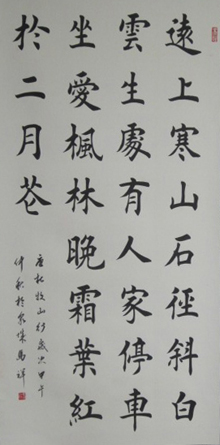 遠上寒山石徑斜白
雲生處有人家停車
坐愛楓林晚霜葉紅
於二月花
唐杜牧山行歲次甲午
仲秋於